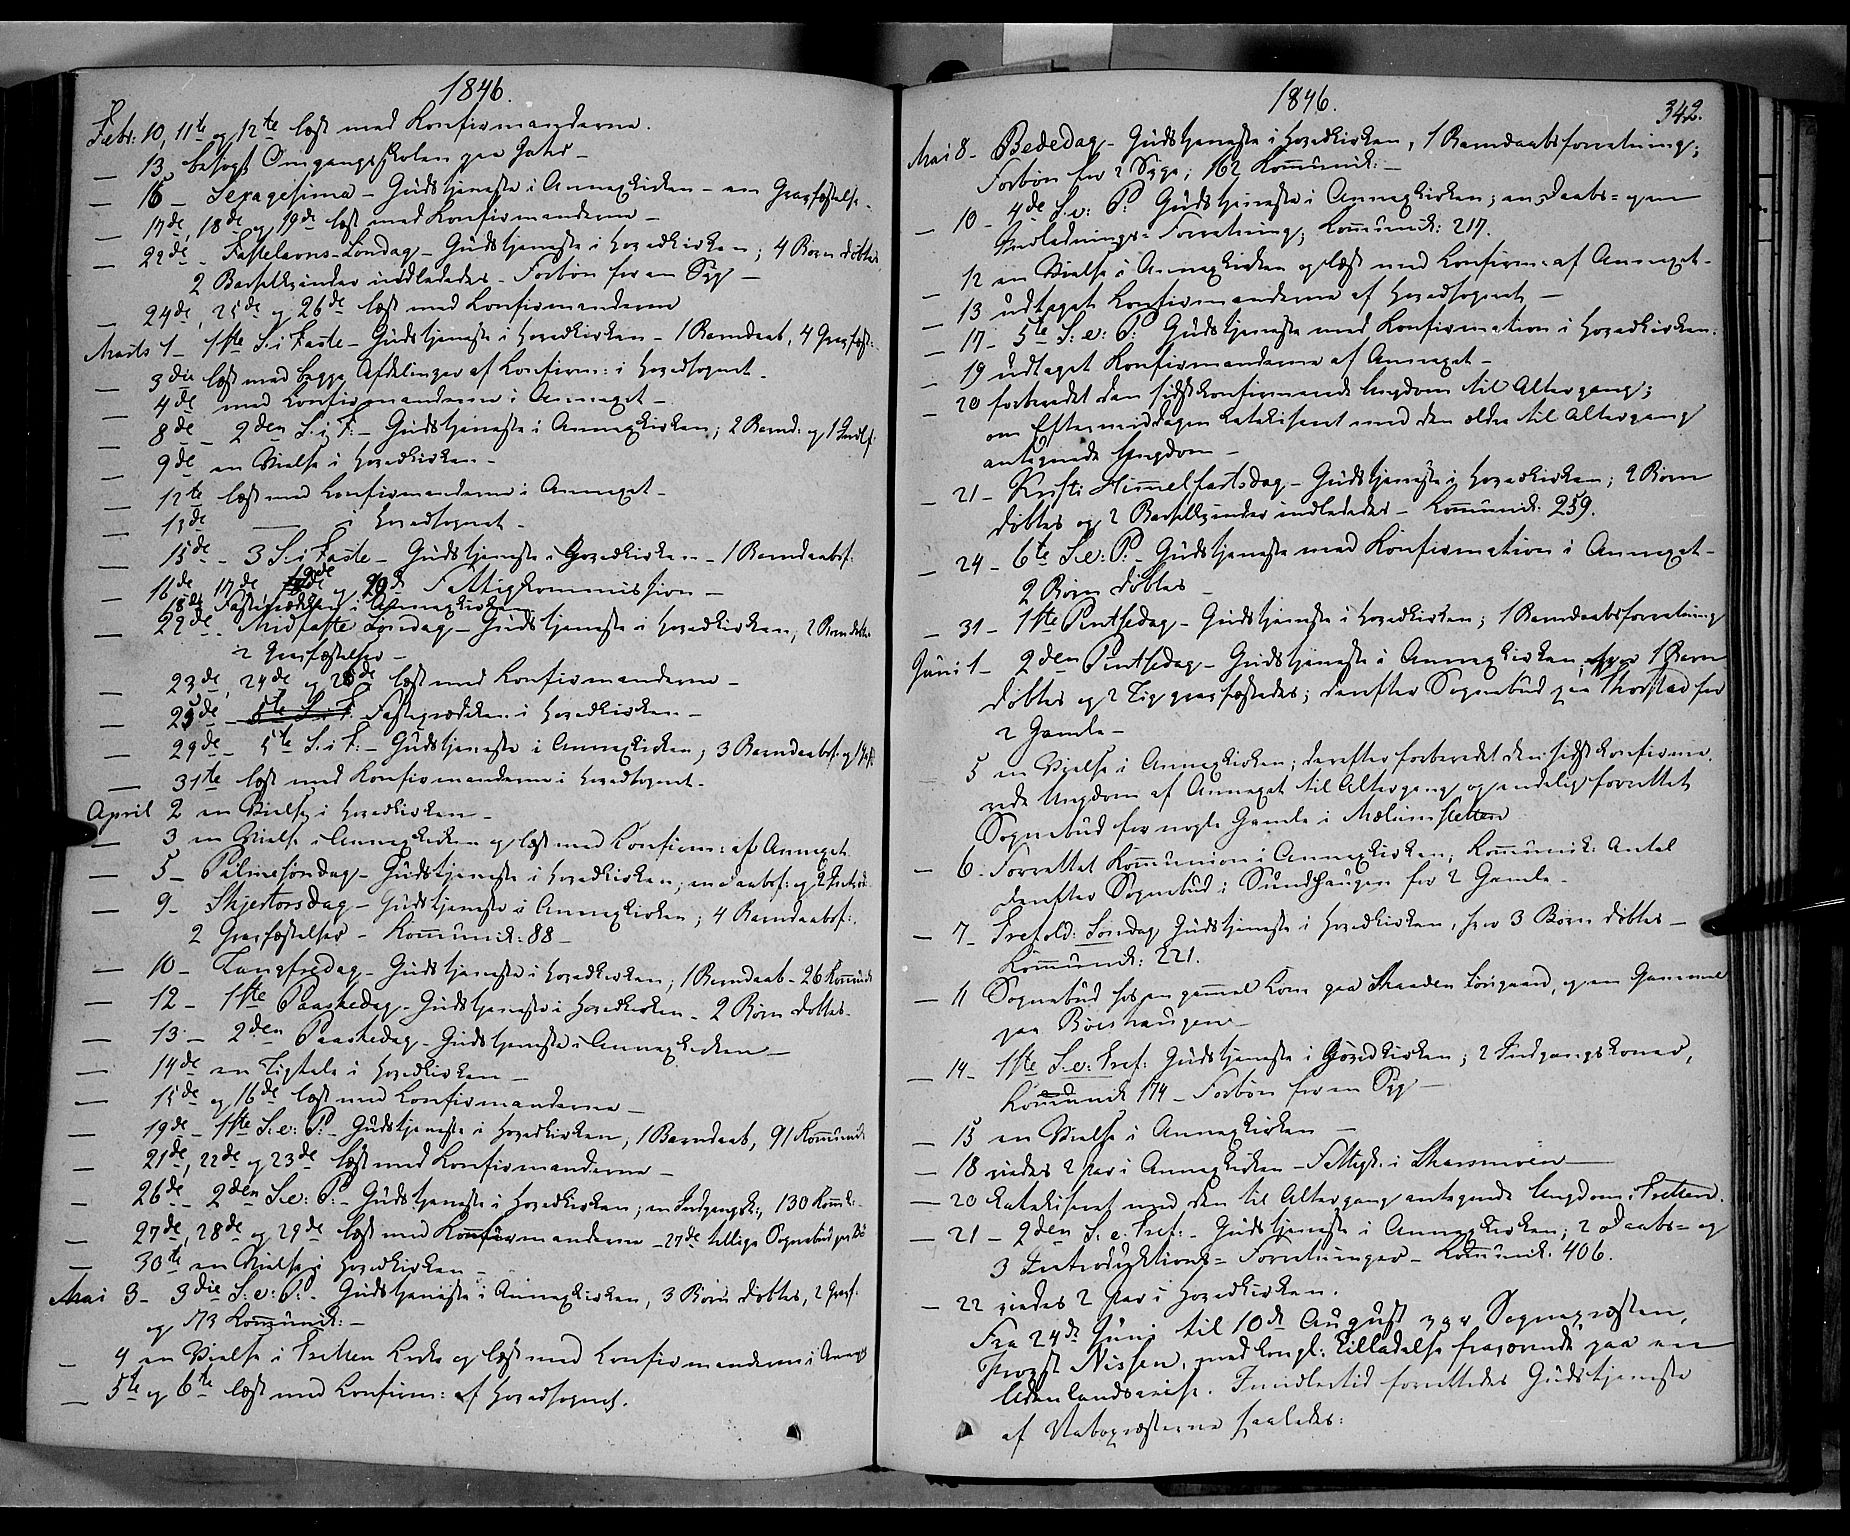 1846.
Febr: 10, 11te og 12te læst med Konfirmanderne.
— 13 besøgt Omgangsskolen paa
— 15 – Sexagesima – Gudstjeneste i Annexkirken – en Gravfæstelse.
— 17de, 18de og 19de læst med Konfirmanderne –
— 22de – Fastelavns-Søndag – Gudstjeneste i Hovedkirken; 4 Børn døbtes.
2 Barselkvinder indlededes – Forbøn for en Syg –
— 24de, 25de og 26de læst med Konfirmanderne
Marts 1 – 1ste S. i Faste – Gudstjeneste i Hovedkirken – 1 Barndaab, 4 Gravfæst:
— 3die læst med begge Afdelinger af Konfirm: i Hovedsognet.
— 4de med Konfirmanderne i Annexet –
— 8de – 2den S. i F. – Gudstjeneste i Annexkirken; 2 Barnd: og 1
— 9de en Vielse i Hovedkirken –
— 12te læst med Konfirmanderne i Annexet –
— 13de — i Hovedsognet –
— 15de – 3 S. i Faste – Gudstjeneste i Hovedkirken – 1 Barndaabsf:
— 16de 17de 19de og 20de Fattigkommission –
18de Fasteprædiken i Annexkirken
— 22de – Midfaste Søndag – Gudstjeneste i Hovedkirken, 2 Børn døbtes
2 Gravfæstelser –
— 23de, 24de og 26de læst med Konfirmanderne –
— 25de – 5te S. i F. Fasteprædiken i Hovedkirken –
— 29de – 5te S. i F: – Gudstjeneste i Annexkirken; 3 Barndaabsf: og 1
— 31te læst med Konfirmanderne i Hovedsognet.
April 2 en Vielse i Hovedkirken –
— 3 en Vielse i Annexkirken og læst med Konfirm: af Annexet
— 5 – Palmesøndag – Gudstjeneste i Hovedkirken; en Daabsf: og 2
— 9 – Skjertorsdag – Gudstjeneste i Annexkirken; 4 Barndaabsf:
2 Gravfæstelser – Kommunik: 88 –
— 10 – Langfredag – Gudstjeneste i Hovedkirken; 1 Barndaab – 26 Kommunik
— 12 – 1ste Paaskedag – Gudstjeneste i Hovedkirken – 2 Børn døbtes –
— 13 – 2den Paaskedag – Gudstjeneste i Annexkirken –
— 14de en Ligtale i Hovedkirken –
— 15de og 16de læst med Konfirmanderne –
— 19de – 1ste S. e: P: – Gudstjeneste i Hovedkirken, 1 Barndaab, 91 Kommunik
— 21de, 22de og 23de læst med Konfirmanderne –
— 26de – 2den S. e: P: – Gudstjeneste i Hovedkirken; en Indgangsk:, 130 Komk:
— 27de, 28de og 29de læst med Konfirmanderne – 27de tillige Sognebud paa
— 30te en Vielse i Hovedkirken –
Mai 3 – 3die S. e: P: – Gudstjeneste i Annexkirken, 3 Børn døbtes, 2 Gravf:
og 173 Kommunik: –
— 4 en Vielse i Tretten Kirke og læst med Konfirmanderne i Annext
— 5te og 6te læst med Konfirm: af Hovedsognet.
1846.
342.
Mai 8 – Bededag – Gudstjeneste i Hovedkirken, 1 Barndaabsforretning;
Forbøn for 2 Syge; 162 Kommunik: –
— 10 – 4de S. e: P: Gudstjeneste i Annexkirken; en Daabs- og en
Indlednings-Forretning; Kommunik: 217.
— 12 en Vielse i Annexkirken og læst med Konfirm: af Annexet –
— 13 udtaget Konfirmanderne af Hovedsognet –
— 17 – 5te S. e: P: Gudstjeneste med Konfirmation i Hovedkirken.
— 19 udtaget Konfirmanderne af Annexet –
— 20 forberedet den sidst konfirmerede Ungdom til Altergang;
om Eftermiddagen katekiseret med den ældre til Altergang
antegnede Ungdom –
— 21 – Kristi Himmelfartsdag – Gudstjeneste i Hovedkirken; 2 Børn
døbtes og 2 Barselkvinder indlededes – Kommunik: 259.
— 24 – 6te S. e: P: – Gudstjeneste med Konfirmation i Annexet –
2 Børn døbtes –
— 31 – 1ste Pintsedag – Gudstjeneste i Hovedkirken; 1 Barndaabsforretning
Juni 1 – 2den Pintsedag – Gudstjeneste i Annexkirken, hvor 1 Barn
døbtes og 2 Lig gravfæstedes; derefter Sognebud paa Thorstad for
2 Gamle –
5 en Vielse i Annexkirken; derefter forberedet den sidst konfirme-
rede Ungdom af Annexet til Altergang og endelig forrettet
Sognebud for nogle Gamle i Mælumsletten
— 6 – Forrettet Kommunion i Annexkirken; Kommunik: Antal
derefter Sognebud i Sundhaugen for 2 Gamle –
— 7 – Trefold: Søndag Gudstjeneste i Hovedkirken, hvor 3 Børn døbtes –
Kommunik: 221.
— 11 Sognebud hos en gammel Kone paa Skaaden , og en Gammel
paa Bøeshaugen –
— 14 – 1ste S. e: Tref: Gudstjeneste i Hovedkirken; 2 Indgangskoner,
Kommunik 174 – Forbøn for en Syg –
— 15 en Vielse i Annexkirken –
— 18 viedes 2 Par i Annexkirken – Fattigk: i Skarsmoen –
— 20 katekiseret med den til Altergang antegnede Ungdom i Tretten.
— 21 – 2den S. e. Tref: – Gudstjeneste i Annexkirken; 2 Daabs- og
3 Introduktions-Forretninger – Kommunik: 406.
— 22 viedes 2 Par i Hovedkirken.
Fra 24de Juni til 10de August var Sognepræsten,
Provst Nissen, med kongl: Tilladelse fraværende paa en
Udenlandsreise. Imidlertid forrettedes Gudstjeneste
af Nabopræsterne saaledes: